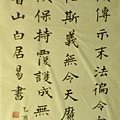 傳示末法徧令
斯義無令天魔
保持覆護成無
香山白居易書